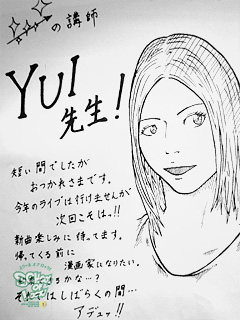 の講師
YUI
先生！
短い間でしたが
おつかれさまです。
今年のライブは行けませんが
次回こそはっ!!
新曲楽しみに待ってます。
帰ってくる前に
漫画家になりたい。
かな…？
それではしばらくの間…
アデュッ!!